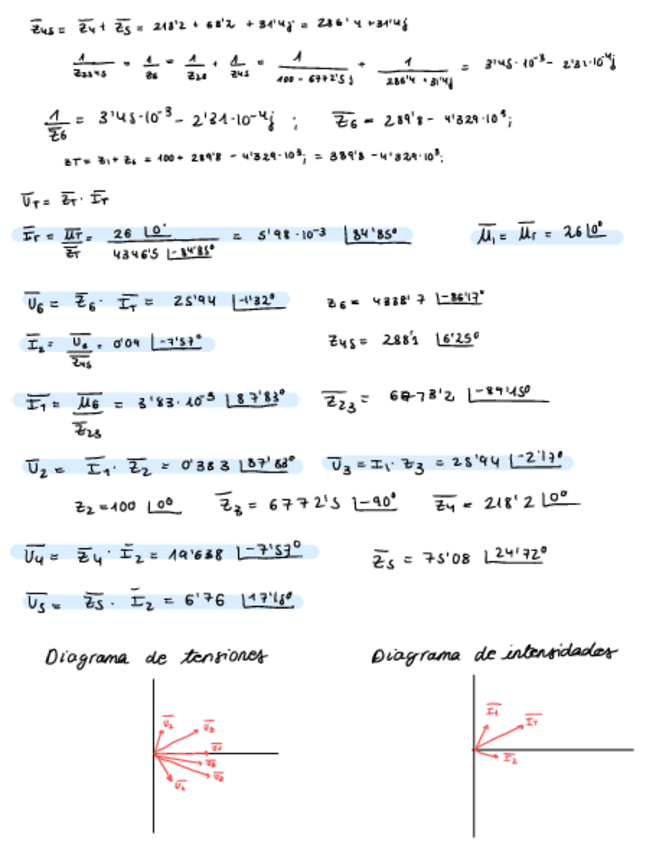 Z̅45 = Z̅4 + Z̅5 = 218'2 + 68'2 + 31'4j = 286'4 + 31'4j
1/Z2345 = 1/Z6 = 1/Z23 + 1/Z45 = 1/(100 - 6772'5j) + 1/(286'4 + 31'4j) = 3'45·10⁻³ - 2'31·10⁻⁴j
1/Z̅6 = 3'45·10⁻³ - 2'31·10⁻⁴j ; Z̅6 = 289'8 - 4'329·10³j
ZT = Z1 + Z6 = 100 + 289'8 - 4'329·10³j = 389'8 - 4'329·10³j
U̅T = Z̅T · I̅T
I̅T = U̅T/Z̅T = 26 |0° / 4346'5 |-84'85° = 5'98·10⁻³ |84'85° U̅1 = U̅T = 26 |0°
U̅6 = Z̅6 · I̅T = 25'94 |-1'32° Z6 = 4338'7 |-86'17°
I̅2 = U̅6/Z̅45 = 0'09 |-7'57° Z45 = 288'1 |6'25°
I̅1 = U̅6/Z̅23 = 3'83·10⁻³ |87'83° Z̅23 = 6773'2 |-89'15°
U̅2 = I̅1 · Z̅2 = 0'383 |87'83° U̅3 = I1 · Z3 = 25'94 |-2'17°
Z2 = 100 |0° Z̅3 = 6772'5 |-90° Z̅4 = 218'2 |0°
U̅4 = Z̅4 · I̅2 = 19'638 |-7'57° Z̅5 = 75'08 |24'72°
U̅5 = Z̅5 · I̅2 = 6'76 |17'15°
Diagrama de tensiones Diagrama de intensidades
U̅2 U̅3 I̅1 I̅T
U̅1
U̅6 I̅2
U̅4